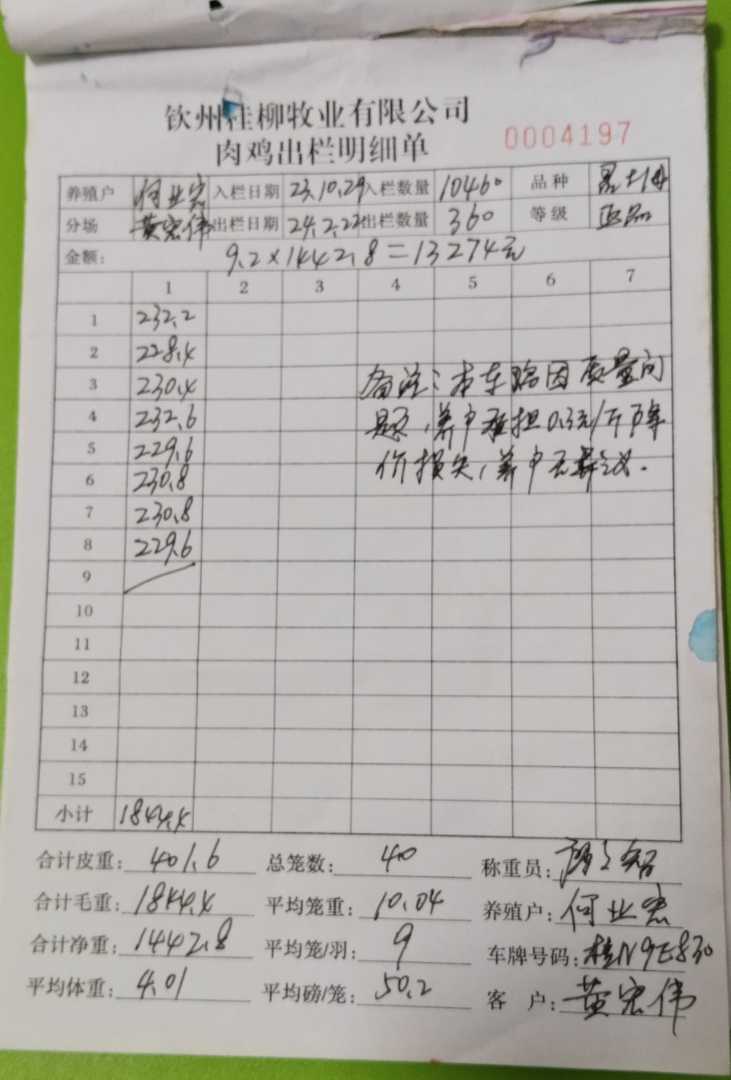 钦州桂柳牧业有限公司
肉鸡出栏明细单 0004197
养殖户 何业宏 入栏日期 23.10.29 入栏数量 10460 品种
分场 黄宏伟 出栏日期 24.2.22 出栏数量 360 等级 正品
金额: 9.2×1442.8=13274元
1 2 3 4 5 6 7
1 232.2
2 228.4
3 230.4
4 232.6
5 229.6
6 230.8
7 230.8
8 229.6
9
10
11
12
13
14
15
备注:本车鸡因质量问
题,养户承担0.3元/斤降
价损失,养户无异议.
小计 1844.4
合计皮重: 401.6 总笼数: 40 称重员:
合计毛重: 1844.4 平均笼重: 10.04 养殖户: 何业宏
合计净重: 1442.8 平均笼/羽: 9 车牌号码: 桂N9E830
平均体重: 4.01 平均磅/笼: 50.2 客户: 黄宏伟